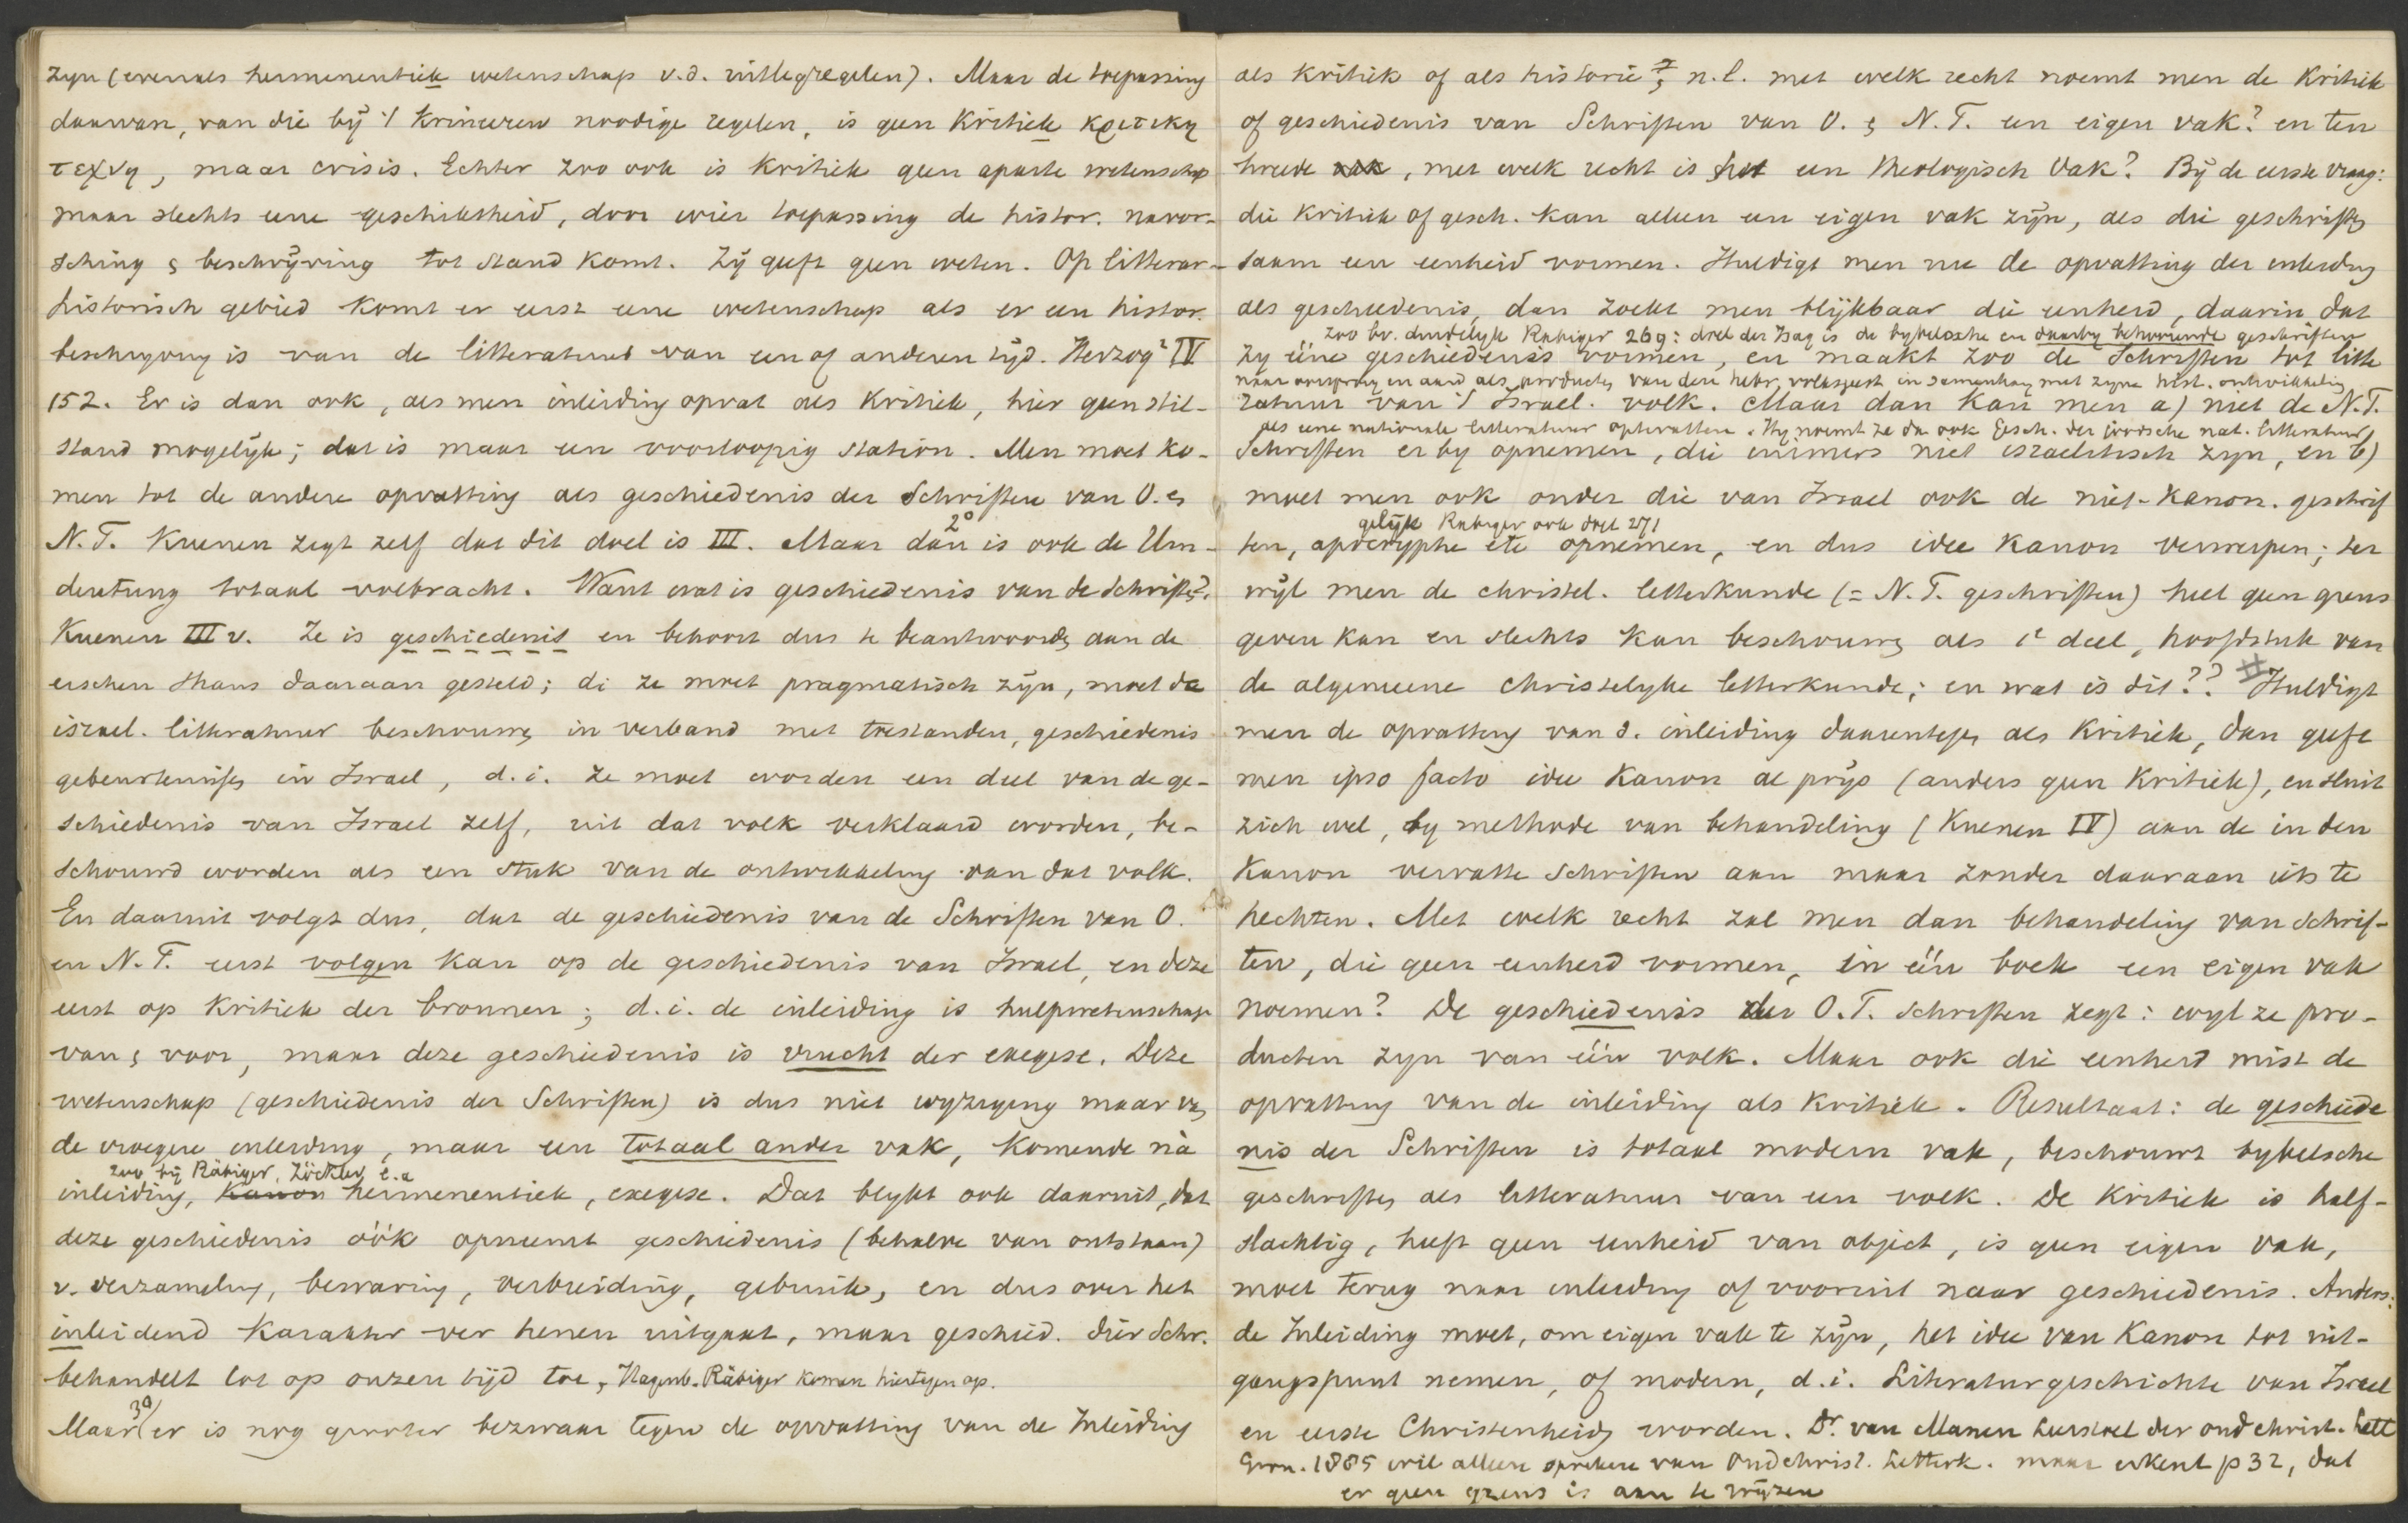 zyn (evenals hermeneutiek wetenschap v.d. uitlegregelen). Maar de toepassing
daarvan, van die bij 't kriniseren noodige regelen, is geen Kritiek κριτικη
τεχνη, maar crisis. Echter zoo ook is kritiek geen aparte wetenschap
maar slechts eene geschiktheid, door wier toepassing de histor. navor-
sching & beschrijving tot stand komt. Zij geeft geen weten. Op litterar-
historisch gebied komt er eerst eene wetenschap als er een histor.
beschryving is van de litteratuur van een of anderen tijd. Herzog² IV
152. Er is dan ook, als men inleiding opvat als Kritiek, hier geen stil-
stand mogelijk; dat is maar een voorloopig station. Men moet ko-
men tot de andere opvatting als geschiedenis der Schriften van O. &
N.T. Kuenen zegt zelf dat dit doel is III. Maar dan 2° is ook de Um-
deutung totaal volbracht. Want wat is geschiedenis van de Schriften?
Kuenen III v. Ze is geschiedenis en behoort dus te beantwoorden aan de
eischen thans daaraan gesteld; di ze moet pragmatisch zijn, moet de
israel. litteratuur beschouwen in verband met toestanden, geschiedenis
gebeurtenissen in Israel, d.i. ze moet worden een deel van de ge-
schiedenis van Israel zelf, uit dat volk verklaard worden, be-
schouwd worden als een stuk van de ontwikkeling van dat volk.
En daaruit volgt dus, dat de geschiedenis van de Schriften van O.
en N.T. eerst volgen kan op de geschiedenis van Israel, en deze
eerst op kritiek der bronnen; d.i. de inleiding is hulpwetenschap
van & voor, maar deze geschiedenis is vrucht der exegese. Deze
wetenschap (geschiedenis der Schriften) is dus niet wyziging maar van
de vroegere inleiding, maar een totaal ander vak, komende nà
zoo bij Räbiger, Zöckler, e.a
inleiding, Kanon hermeneutiek, exegese. Dat blykt ook daaruit, dat
deze geschiedenis óók opneemt geschiedenis (behalve van ontstaan)
v. verzameling, bewaring, verbreiding, gebruik, en dus over het
inleidend karakter ver henen uitgaat, maar geschied. dier Schr.
behandelt tot op onzen tijd toe, Hagenb. Räbiger komen hiertegen op.
Maar 3°) er is nog grooter bezwaar tegen de opvatting van de Inleiding
als kritiek of als historie, n.l. met welk recht noemt men de Kritiek
of geschiedenis van Schriften van O. & N.T. een eigen vak? en ten
tweede vak, met welk recht is het een theologisch vak? Bij de eerste vraag:
die kritiek of gesch. kan alleen een eigen vak zijn, als die geschriften
saam een eenheid vormen. Huldigt men nu de opvatting der inleiding
als geschiedenis, dan zoekt men blijkbaar die eenheid, daarin dat
zoo bv. duidelyk Rabiger 269: doel der Isag is de bybelsche en daarby behoorende geschriften
zy ééne geschiedenis vormen, en maakt zoo de Schriften tot litte
naar oorsprong en aard als producten van den hebr. volksgeest in samenhang met zyne hist. ontwikkeling
ratuur van 't Israel. volk. Maar dan kan men a) niet de N.T.
als eene nationale litteratuur optevatten. Hy noemt ze da ook Gesch. der joodsche nat. litteratuur
Schriften er by opnemen, die immers niet israelitisch zyn, en b)
moet men ook onder die van Israel ook de niet-kanon. geschrif
gelijk Rabiger ook doet 271
ten, apocryphe etc opnemen, en dus idee Kanon verwerpen; ter
wijl men de christel. letterkunde (= N.T. geschriften) heel geen grens
geven kan en slechts kan beschouwen als 1e deel, hoofdstuk van
de algemeene christelyke letterkunde; en wat is dit?? # Huldigt
men de opvatting van d. inleiding daarentegen als Kritiek, dan geeft
men ipso facto idee Kanon al prijs (anders geen Kritiek), en sluit
zich wel, by methode van behandeling (Kuenen IV) aan de in den
Kanon vervatte Schriften aan maar zonder daaraan iets te
hechten. Met welk recht zal men dan behandeling van Schrif-
ten, die geen eenheid vormen, in één boek een eigen vak
noemen? De geschiedenis der O.T. Schriften zegt: wyl ze pro-
ducten zyn van één volk. Maar ook die eenheid mist de
opvatting van de inleiding als Kritiek. Resultaat: de geschiede
nis der Schriften is totaal modern vak, beschouwt bybelsche
geschriften als litteratuur van een volk. De kritiek is half-
slachtig, heeft geen eenheid van object, is geen eigen vak,
moet terug naar inleiding of vooruit naar geschiedenis. Anders:
de Inleiding moet, om eigen vak te zijn, het idee van Kanon tot uit-
gangspunt nemen, of modern, d.i. Literaturgeschichte van Israel
en eerste Christenheid worden. Dr. van Manen Leerstoel der oud christ. Lett
Gron. 1885 wil alleen spreken van Oudchrist. Letterk. maar erkent p 32, dat
er geen grens is aan te wijzen